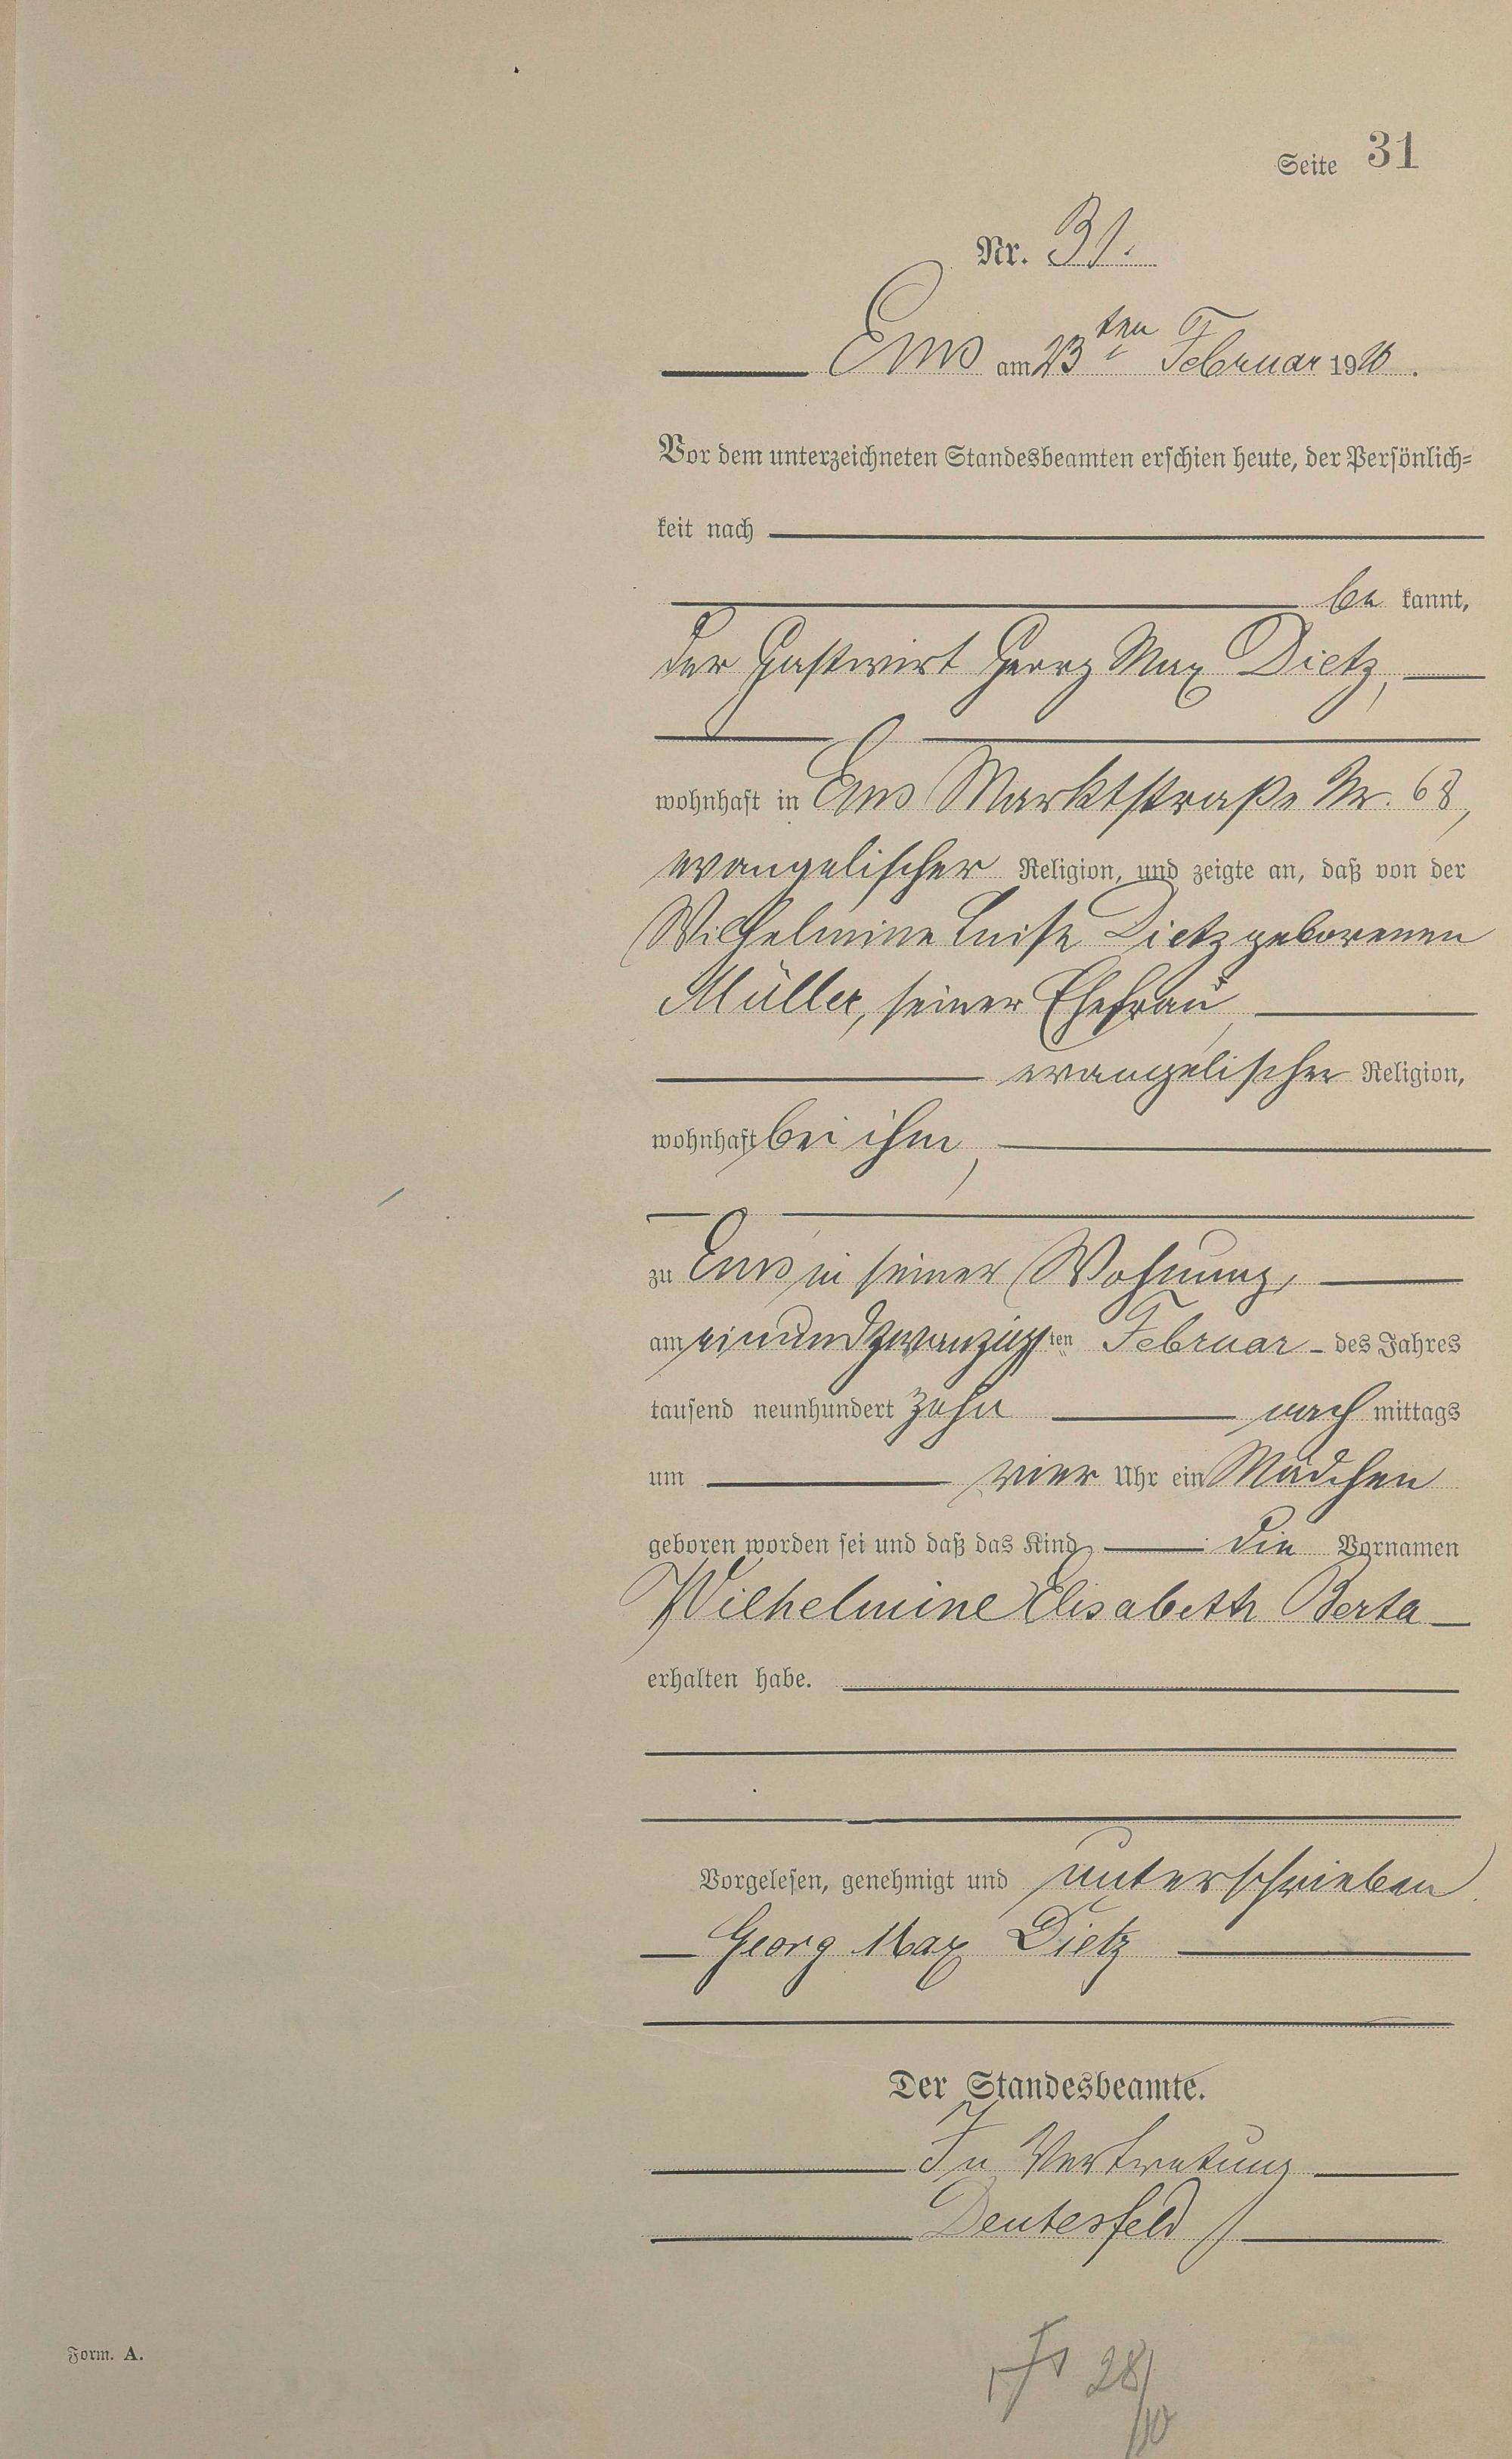 Seite 31
Nr. 31.
Ems am 23ten Februar 1910.
Vor dem unterzeichneten Standesbeamten erschien heute, der Persönlich-
keit nach
be kannt,
der Gastwirt Georg Max Dietz,
wohnhaft in Ems Marktstraße Nr. 68,
evangelischer Religion, und zeigte an, daß von der
Wilhelmine Luise Dietz geborenen
Müller, seiner Ehefrau,
evangelischer Religion,
wohnhaft bei ihm,
zu Ems in seiner Wohnung,
am einundzwanzigsten Februar des Jahres
tausend neunhundert zehn nach mittags
um vier Uhr ein Mädchen
geboren worden sei und daß das Kind die Vornamen
Wilhelmine Elisabeth Berta
erhalten habe.
Vorgelesen, genehmigt und unterschrieben
Georg Max Dietz
Der Standesbeamte.
In Vertretung
Deutesfeld
28/10
Form. A.